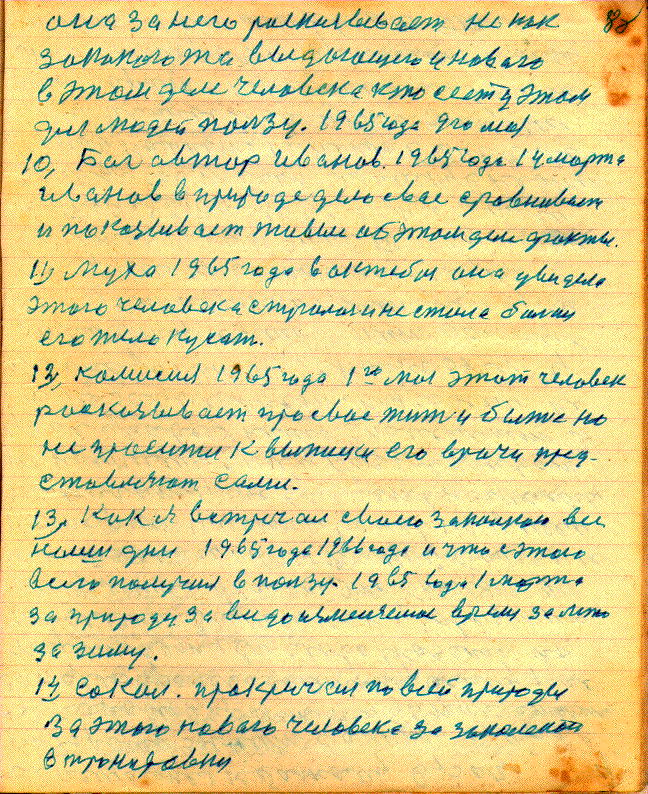 она за него расказывает не как
за такого та выдающего и новаго
в этом деле человека кто сест у этом
для людей ползу. 1965 года
10, Бог автор Иванов. 1965 года 14 марта
Иванов в природе дело свае сравнивает
и паказывает живые об этом деле факты.
11, Муха 1965 года в октебри она увидела
этого человека и не стала болии
его тело кусат.
12, комисия 1965 года 1го мая этот человек
расказывает про свае тит и быте но
не просити к выписки его врачи пред-
ставляют сами.
13, Как я встречал своего закалкаю все
неши дни 1965 года 1966 года и что с этого
всего получил в ползу. 1965 года 1 марта
за природу за видоизменение время за лето
за зиму.
14 Сокол. прокричал по всей природи
За этого новаго человека за закаленой
в тренировки